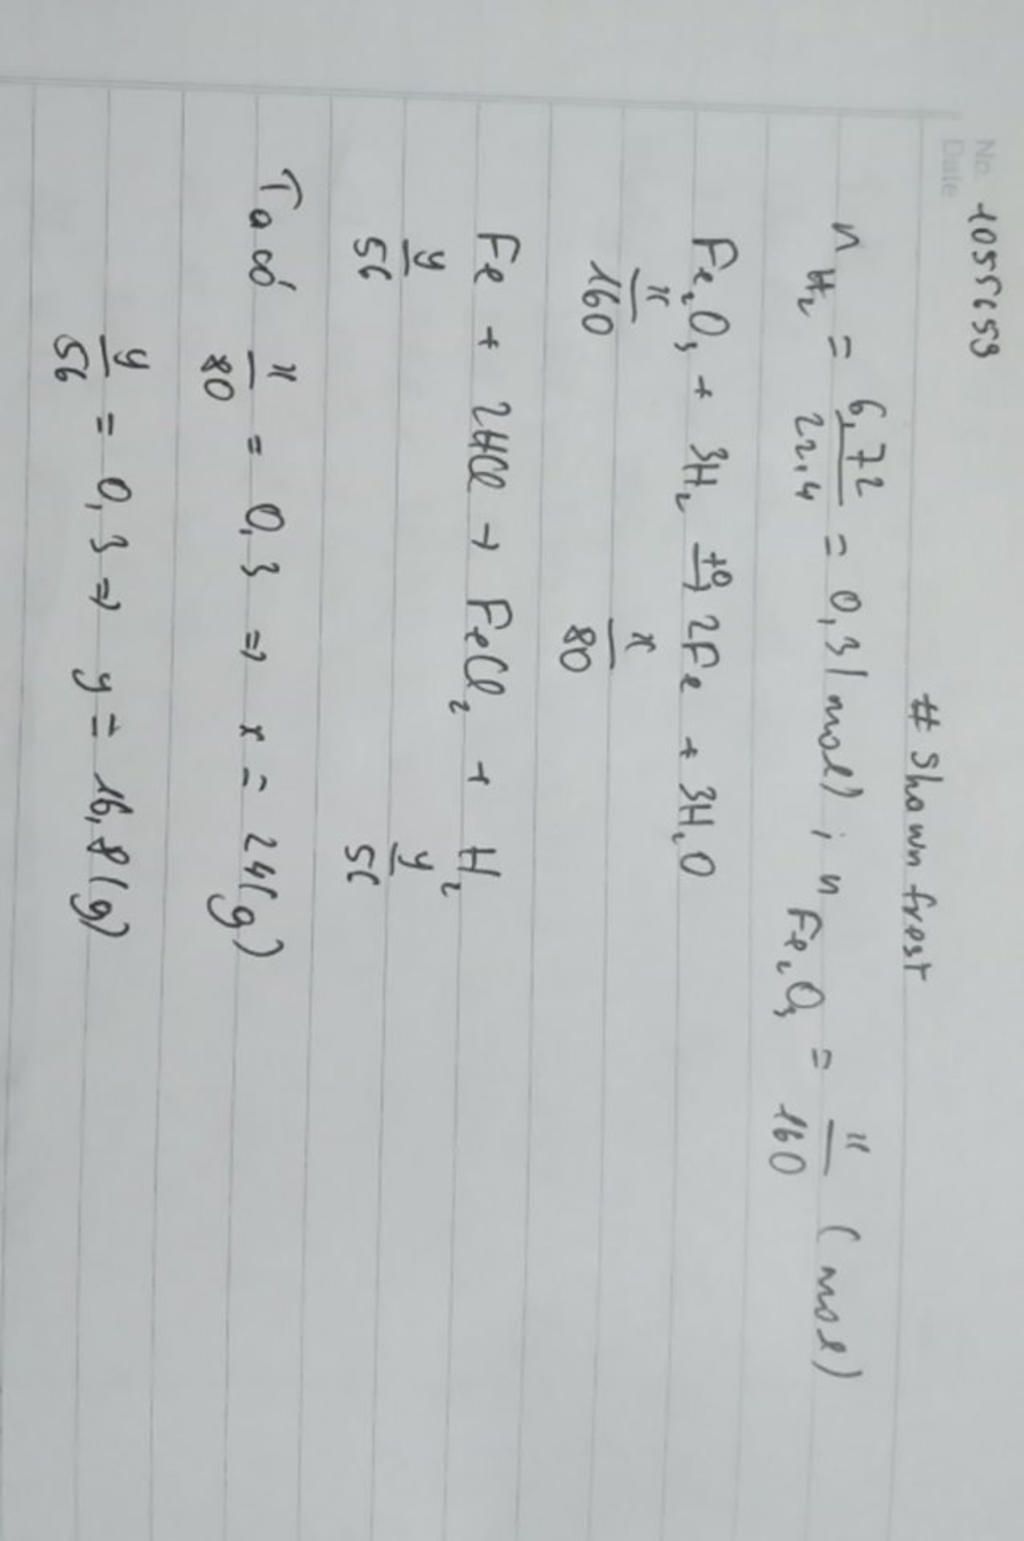 No. 1055659
Date
# Shawn frest
n H₂ = 6,72/22,4 = 0,3 (mol) ; n Fe₂O₃ = x/160 (mol)
Fe₂O₃ + 3H₂ →(t0) 2Fe + 3H₂O
x/160 x/80
Fe + 2HCl → FeCl₂ + H₂
y/56 y/56
Ta có x/80 = 0,3 => x = 24(g)
y/56 = 0,3 => y = 16,8(g)